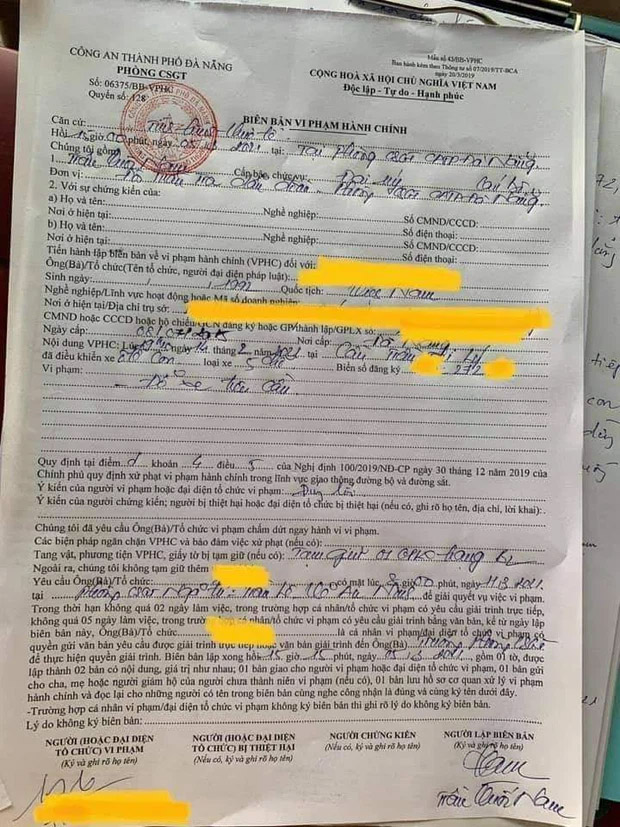 Mẫu số 43/BB-VPHC
Ban hành kèm theo Thông tư số 07/2019/TT-BCA
ngày 20/3/2019
CÔNG AN THÀNH PHỐ ĐÀ NẴNG
PHÒNG CSGT
Số: 06375/BB-VPHC
Quyển số: 128
CỘNG HOÀ XÃ HỘI CHỦ NGHĨA VIỆT NAM
Độc lập - Tự do - Hạnh phúc
BIÊN BẢN VI PHẠM HÀNH CHÍNH
Căn cứ:
Hồi 15 giờ 00 phút, ngày 05 2021 tại: Tại Phòng CSGT CATP Đà Nẵng
Chúng tôi gồm:
1. Trần Quốc Nam Cấp bậc, chức vụ: Đại úy Cán bộ
Đơn vị: Phòng CSGT CATP Đà Nẵng
2. Với sự chứng kiến của:
a) Họ và tên: Nghề nghiệp: Số CMND/CCCD:
Nơi ở hiện tại: Số điện thoại:
b) Họ và tên: Nghề nghiệp: Số CMND/CCCD:
Nơi ở hiện tại: Số điện thoại:
Tiến hành lập biên bản về vi phạm hành chính (VPHC) đối với:
Ông(Bà)/Tổ chức(Tên tổ chức, người đại diện pháp luật):
Sinh ngày / / 1991 Quốc tịch: Việt Nam
Nghề nghiệp/Lĩnh vực hoạt động hoặc Mã số doanh nghiệp
Nơi ở hiện tại/Địa chỉ trụ sở:
CMND hoặc CCCD hoặc hộ chiếu/GCN đăng ký hoặc GP thành lập/GPLX số:
Ngày cấp: Nơi cấp:
Nội dung VPHC: Lúc ngày 14 tháng 2 năm 2021 tại Cầu Trần Thị Lý
đã điều khiển xe ôtô con loại xe 5 chỗ Biển số đăng ký : 272
Vi phạm:
- Đỗ xe trên cầu
Quy định tại điểm d khoản 4 điều 5 của Nghị định 100/2019/NĐ-CP ngày 30 tháng 12 năm 2019 của
Chính phủ quy định xử phạt vi phạm hành chính trong lĩnh vực giao thông đường bộ và đường sắt.
Ý kiến của người vi phạm hoặc đại diện tổ chức vi phạm:
Ý kiến của người chứng kiến; người bị thiệt hại hoặc đại diện tổ chức bị thiệt hại (nếu có, ghi rõ họ tên, địa chỉ, lời khai):
Chúng tôi đã yêu cầu Ông(Bà)/Tổ chức vi phạm chấm dứt ngay hành vi vi phạm.
Các biện pháp ngăn chặn VPHC và bảo đảm việc xử phạt (nếu có):
Tang vật, phương tiện VPHC, giấy tờ bị tạm giữ (nếu có): Tạm giữ 01 GPLX hạng B2
Ngoài ra, chúng tôi không tạm giữ thêm
Yêu cầu Ông(Bà)/Tổ chức có mặt lúc giờ 00 phút, ngày 11.3.2021
tại để giải quyết vụ việc vi phạm.
Trong thời hạn không quá 02 ngày làm việc, trong trường hợp cá nhân/tổ chức vi phạm có yêu cầu giải trình trực tiếp,
không quá 05 ngày làm việc, trong trường hợp cá nhân/tổ chức vi phạm có yêu cầu giải trình bằng văn bản, kể từ ngày lập
biên bản này, Ông(Bà)/Tổ chức là cá nhân vi phạm/đại diện tổ chức vi phạm có
quyền gửi văn bản yêu cầu được giải trình trực tiếp hoặc văn bản giải trình đến Ông(Bà)
để thực hiện quyền giải trình. Biên bản lập xong hồi 15 giờ 15 phút, ngày 05.3.2021, gồm 01 tờ, được
lập thành 02 bản có nội dung, giá trị như nhau; 01 bản giao cho người vi phạm hoặc đại diện tổ chức vi phạm, 01 bản gửi
cho cha, mẹ hoặc người giám hộ của người chưa thành niên vi phạm (nếu có), 01 bản lưu hồ sơ cơ quan xử lý vi phạm
hành chính và đọc lại cho những người có tên trong biên bản cùng nghe công nhận là đúng và cùng ký tên dưới đây.
-Trường hợp cá nhân vi phạm/đại diện tổ chức vi phạm không ký biên bản thì ghi rõ lý do không ký biên bản.
Lý do không ký biên bản:
NGƯỜI (HOẶC ĐẠI DIỆN
TỔ CHỨC) VI PHẠM
(Ký và ghi rõ họ tên)
NGƯỜI (HOẶC ĐẠI DIỆN
TỔ CHỨC) BỊ THIỆT HẠI
(Nếu có, ký và ghi rõ họ tên)
NGƯỜI CHỨNG KIẾN
(Nếu có, ký và ghi rõ họ tên)
NGƯỜI LẬP BIÊN BẢN
(Ký và ghi rõ họ tên)
Trần Quốc Nam